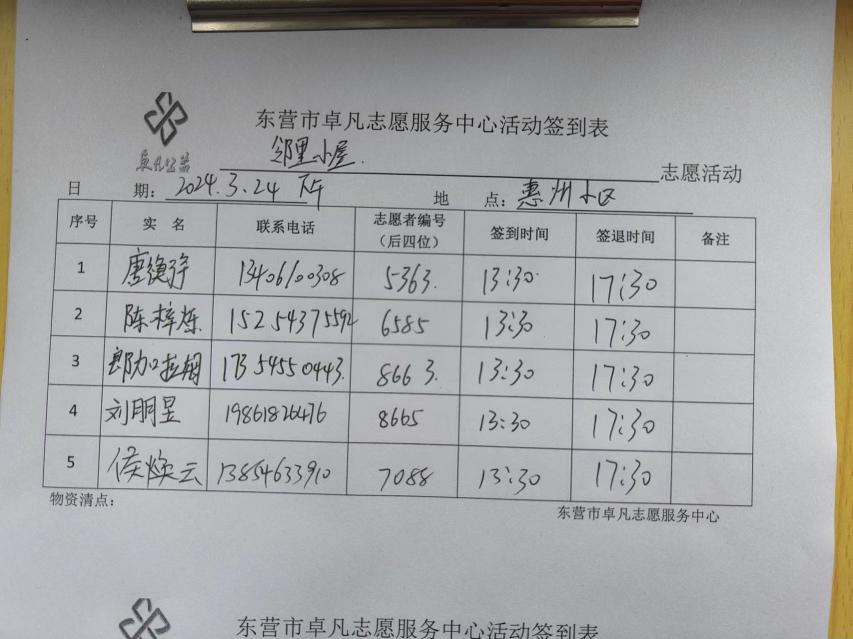 东营市卓凡志愿服务中心活动签到表
卓凡公益
邻里小屋. 志愿活动
日 期: 2024.3.24 下午 地 点: 惠州小区
序号 实 名 联系电话 志愿者编号（后四位） 签到时间 签退时间 备注
1 唐 13406100308 5363. 13:30 17:30
2 陈梓烁 15254375592 6585 13:30 17:30
3 17354550443. 8663. 13:30 17:30
4 刘朋昱 19861826476 8665 13:30 17:30
5 侯焕云 13854633910 7088 13:30 17:30
物资清点: 东营市卓凡志愿服务中心
东营市卓凡志愿服务中心活动签到表